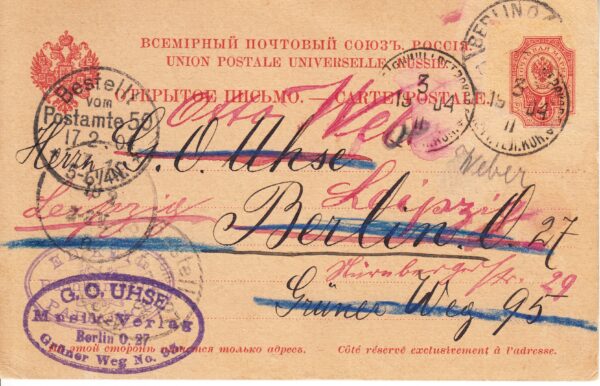 ВСЕМІРНЫЙ ПОЧТОВЫЙ СОЮЗЪ. РОССІЯ
UNION POSTALE UNIVERSELLE. RUSSIE
ОТКРЫТОЕ ПИСЬМО. — CARTE POSTALE.
BERLIN O
3
19 04
11
3
19 04
11
4
Bestellt
vom
Postamte 58
17.2.
5-6¼N
Otto Weber
Herrn G. O. Uhse
Weber
Leipzig
Leipzig
Berlin. O. 27
Nürnberger str. 29
Grüner Weg 95
G. O. UHSE
Musik-Verlag
Berlin O. 27
Grüner Weg No. 95
На этой сторонѣ пишется только адресъ.
Côté réservé exclusivement à l'adresse.